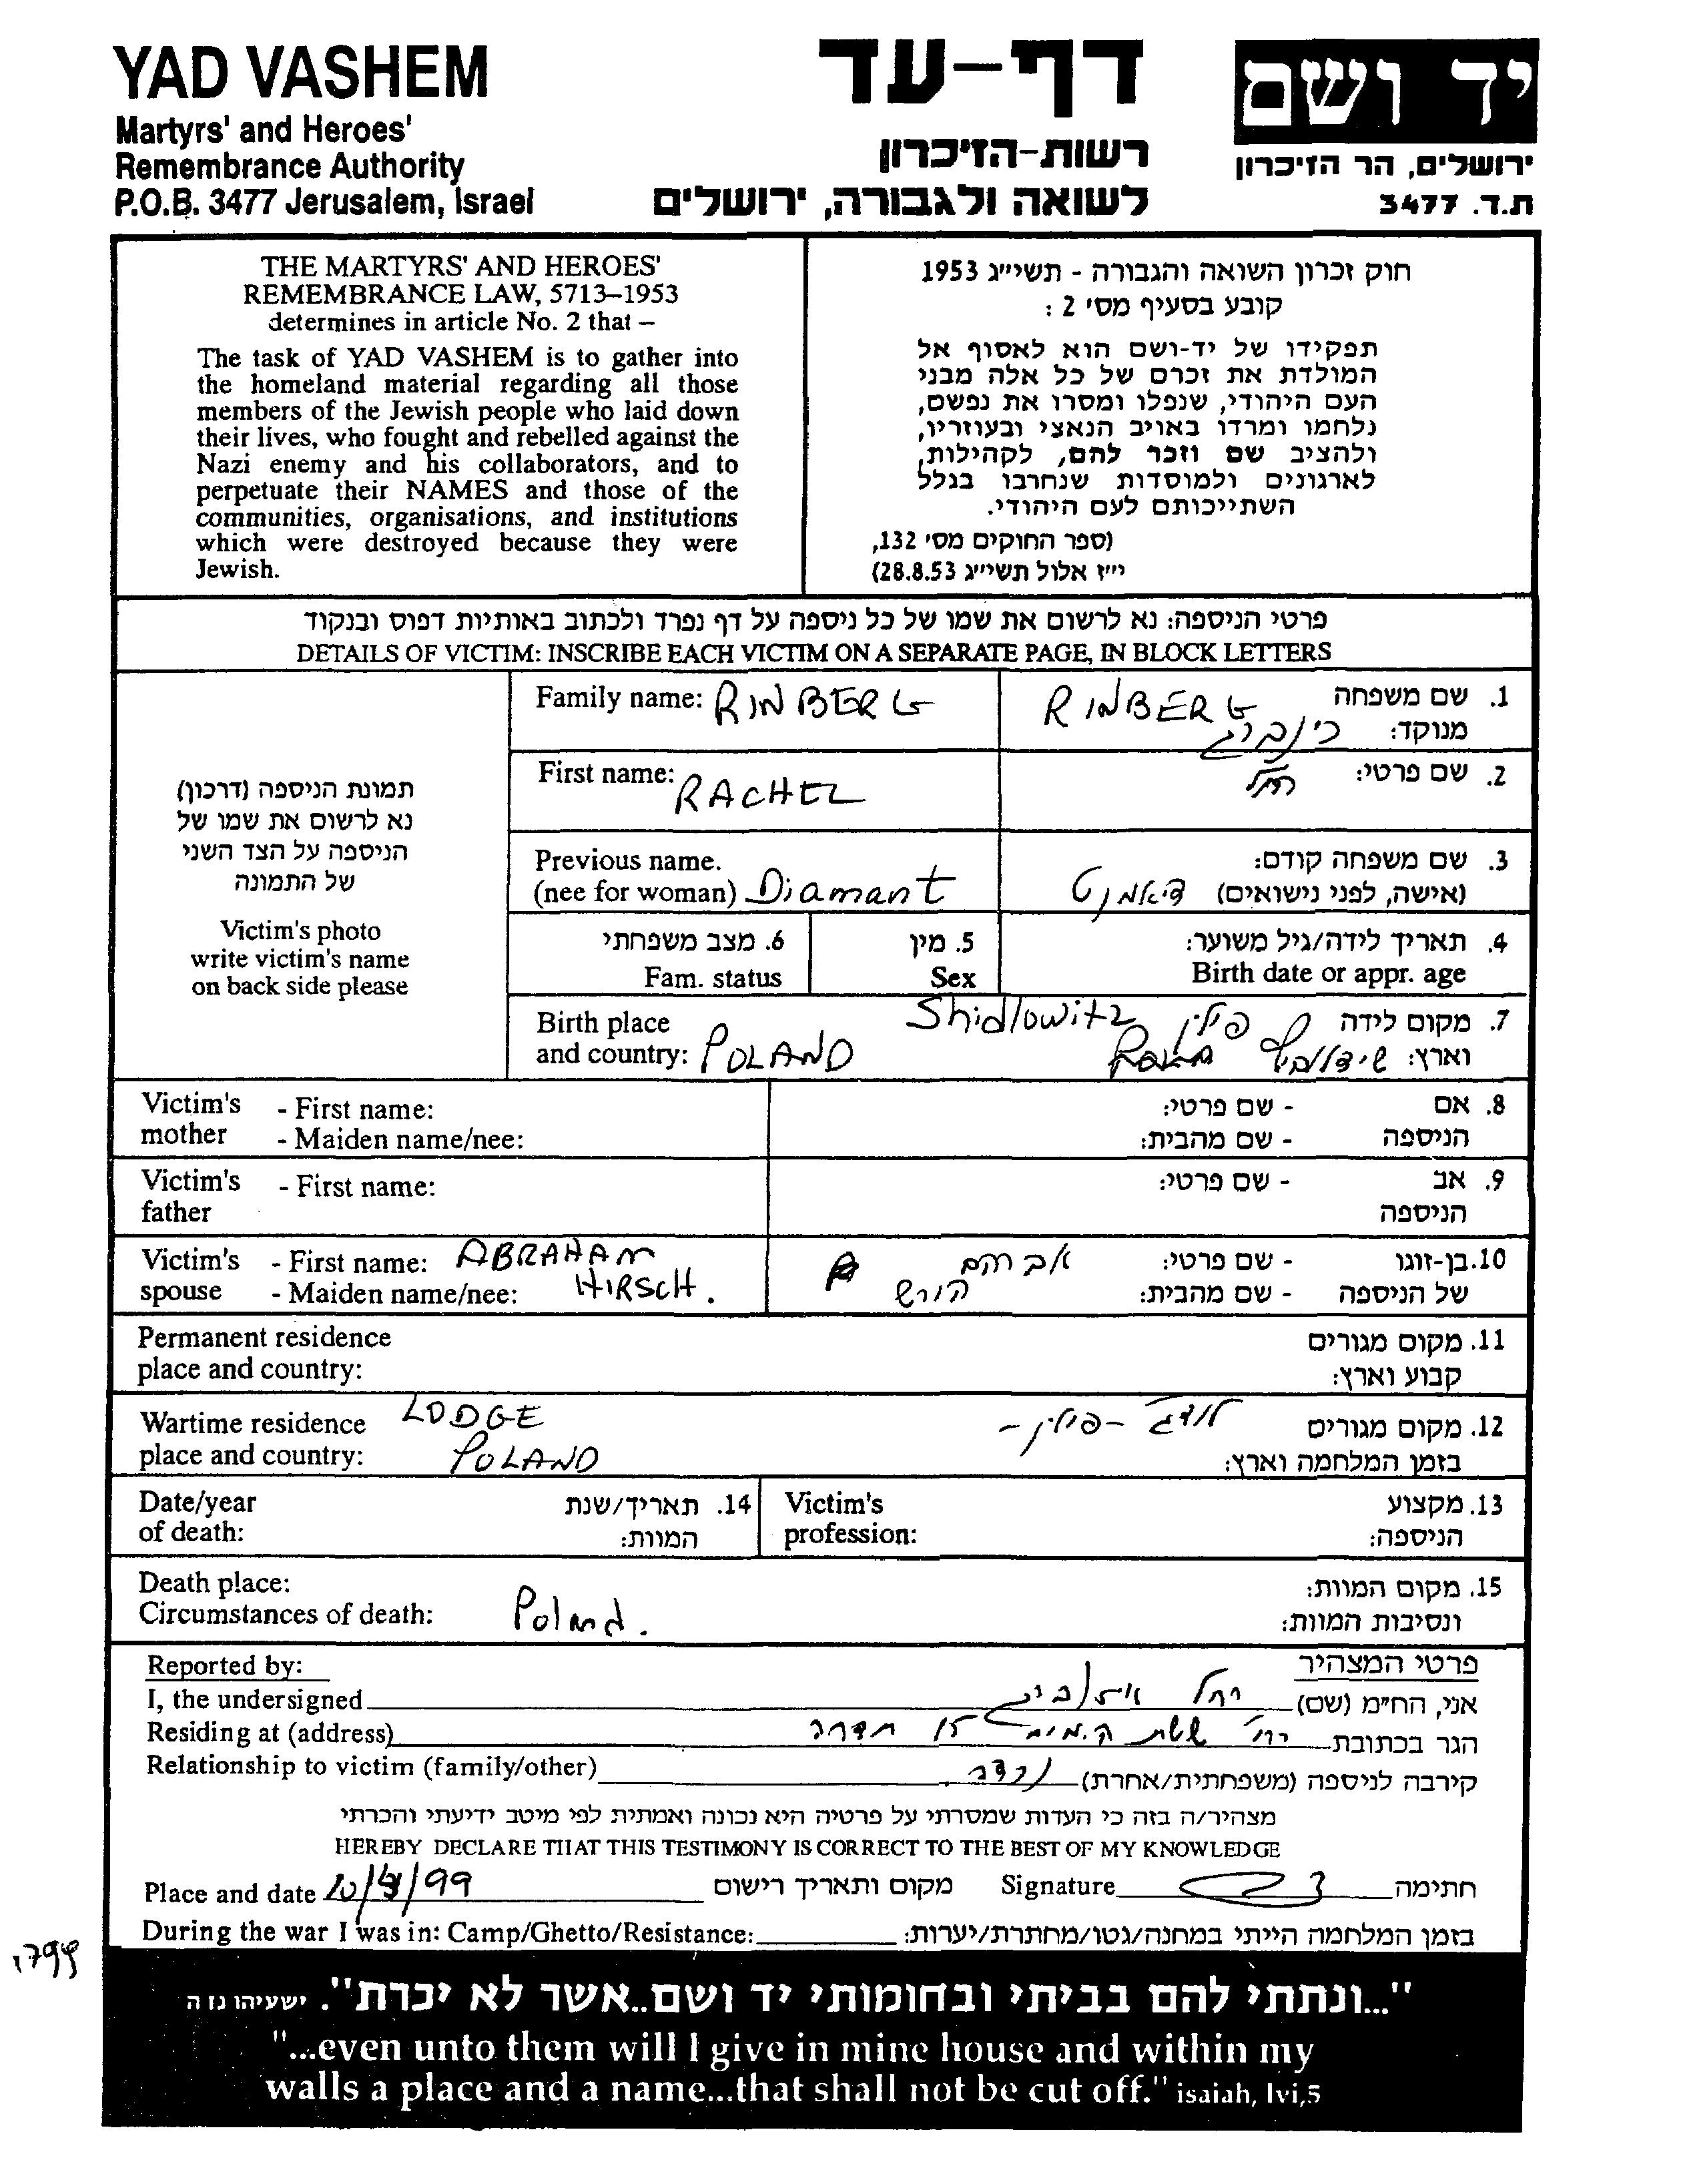 YAD VASHEM
Martyrs' and Heroes'
Remembrance Authority
P.O.B. 3477 Jerusalem, Israel
דף-עד
רשות-הזיכרון
לשואה ולגבורה, ירושלים
יד ושם
ירושלים, הר הזיכרון
ת.ד. 3477
THE MARTYRS' AND HEROES'
REMEMBRANCE LAW, 5713–1953
determines in article No. 2 that –
The task of YAD VASHEM is to gather into
the homeland material regarding all those
members of the Jewish people who laid down
their lives, who fought and rebelled against the
Nazi enemy and his collaborators, and to
perpetuate their NAMES and those of the
communities, organisations, and institutions
which were destroyed because they were
Jewish.
חוק זכרון השואה והגבורה - תשי״ג 1953
קובע בסעיף מס׳ 2 :
תפקידו של יד-ושם הוא לאסוף אל
המולדת את זכרם של כל אלה מבני
העם היהודי, שנפלו ומסרו את נפשם,
נלחמו ומרדו באויב הנאצי ובעוזריו,
ולהציב שם וזכר להם, לקהילות,
לארגונים ולמוסדות שנחרבו בגלל
השתייכותם לעם היהודי.
(ספר החוקים מס׳ 132,
י״ז אלול תשי״ג 28.8.53)
פרטי הניספה: נא לרשום את שמו של כל ניספה על דף נפרד ולכתוב באותיות דפוס ובנקוד
DETAILS OF VICTIM: INSCRIBE EACH VICTIM ON A SEPARATE PAGE, IN BLOCK LETTERS
תמונת הניספה (דרכון)
נא לרשום את שמו של
הניספה על הצד השני
של התמונה
Victim's photo
write victim's name
on back side please
Family name: RINBERG
RINBERG 1. שם משפחה
מנוקד: רינברג
First name: RACHEL
2. שם פרטי: רחל
Previous name.
(nee for woman) Diamant
3. שם משפחה קודם:
(אישה, לפני נישואים) דיאמנט
6. מצב משפחתי
Fam. status
5. מין
Sex
4. תאריך לידה/גיל משוער:
Birth date or appr. age
Birth place
and country: POLAND
Shidlowitz
7. מקום לידה פולין
וארץ: שידלוביץ
Victim's - First name:
mother - Maiden name/nee:
8. אם - שם פרטי:
הניספה - שם מהבית:
Victim's - First name:
father
9. אב - שם פרטי:
הניספה
Victim's - First name: ABRAHAM
spouse - Maiden name/nee: HIRSCH.
10. בן-זוגו - שם פרטי: אברהם
של הניספה - שם מהבית: הירש
Permanent residence
place and country:
11. מקום מגורים
קבוע וארץ:
Wartime residence LODGE
place and country: POLAND
12. מקום מגורים לודג - פולין -
בזמן המלחמה וארץ:
Date/year
of death:
14. תאריך/שנת
המוות:
Victim's
profession:
13. מקצוע
הניספה:
Death place:
Circumstances of death: Poland.
15. מקום המוות:
ונסיבות המוות:
Reported by:
פרטי המצהיר
I, the undersigned
אני, הח״מ (שם) רחל
Residing at (address)
הגר בכתובת רח' ששת הימים 15 חדרה
Relationship to victim (family/other)
קירבה לניספה (משפחתית/אחרת) נכדה
מצהיר/ה בזה כי העדות שמסרתי על פרטיה היא נכונה ואמתית לפי מיטב ידיעתי והכרתי
HEREBY DECLARE THAT THIS TESTIMONY IS CORRECT TO THE BEST OF MY KNOWLEDGE
Place and date מקום ותאריך רישום
Signature חתימה
During the war I was in: Camp/Ghetto/Resistance:
בזמן המלחמה הייתי במחנה/גטו/מחתרת/יערות:
"...ונתתי להם בביתי ובחומותי יד ושם..אשר לא יכרת". ישעיהו נז ה
"...even unto them will I give in mine house and within my
walls a place and a name...that shall not be cut off." isaiah, lvi,5